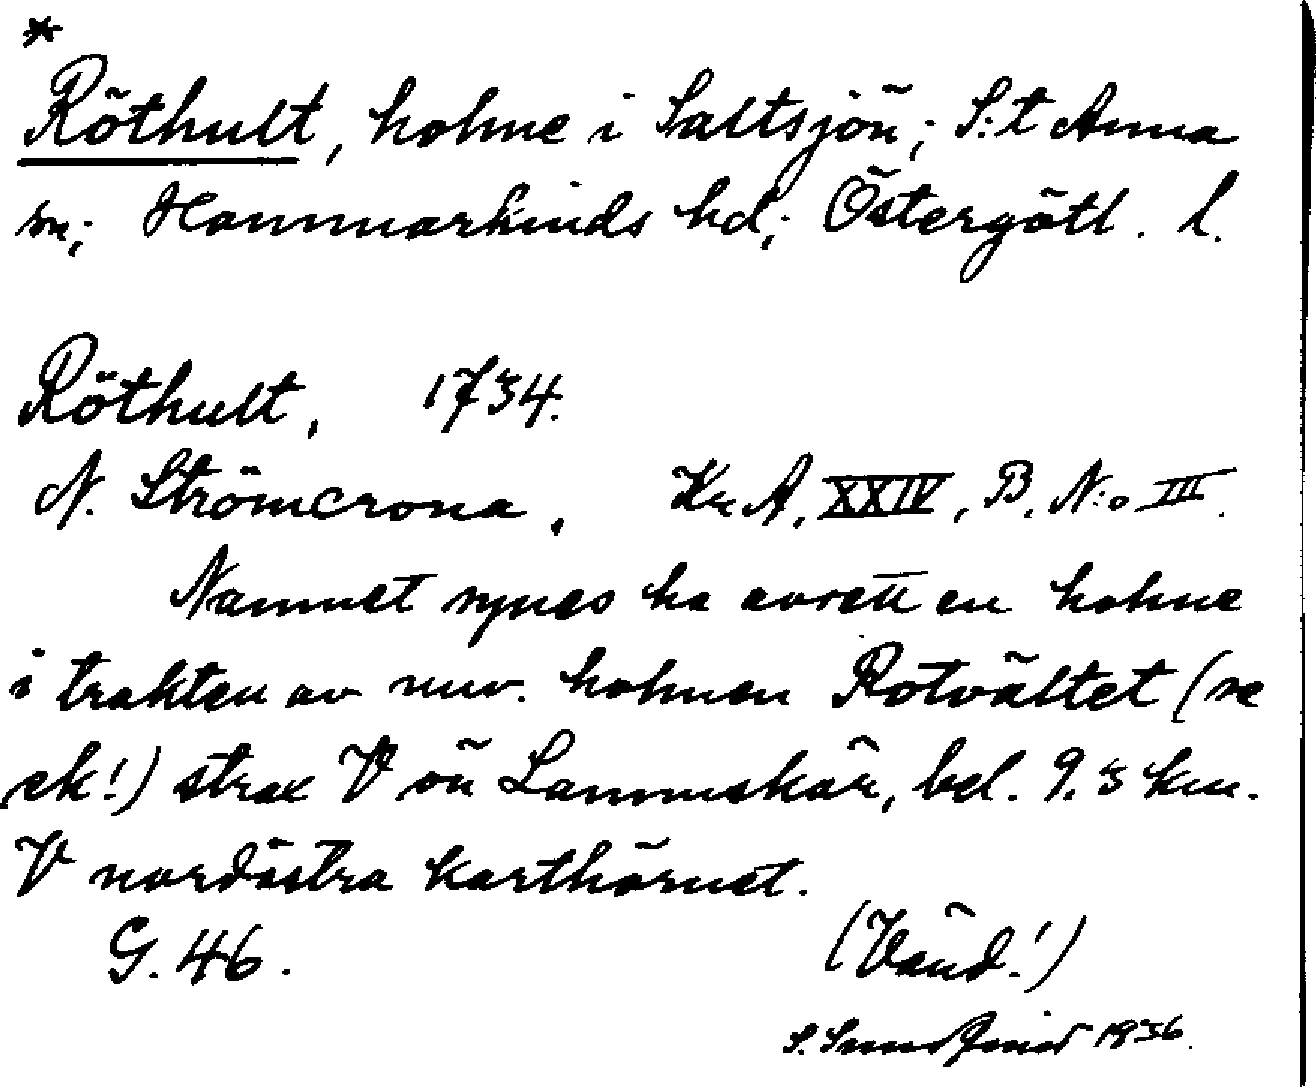 *
Röthult, holme i Saltsjön; S:t Anna
sn; Hammarkinds hd; Östergötl. l.
Röthult, 1734.
N. Strömcrona, Kr. A. XXIV, B. N:o III.
Namnet synes ha avsett en holme
i trakten av nuv. holmen Rotvältet (se
ek!) strax V ön Lammskär, bel. 9.3 km.
V nordöstra karthörnet.
G. 46.
(Vänd!)
S. 1936.